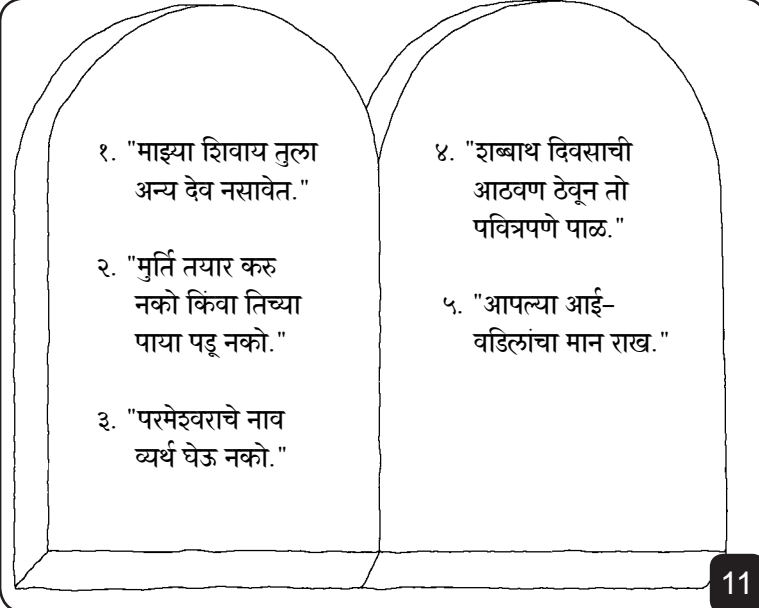 १. "माझ्या शिवाय तुला
अन्य देव नसावेत."
२. "मुर्ति तयार करु
नको किंवा तिच्या
पाया पडू नको."
३. "परमेश्वराचे नाव
व्यर्थ घेऊ नको."
४. "शब्बाथ दिवसाची
आठवण ठेवून तो
पवित्रपणे पाळ."
५. "आपल्या आई–
वडिलांचा मान राख."
11